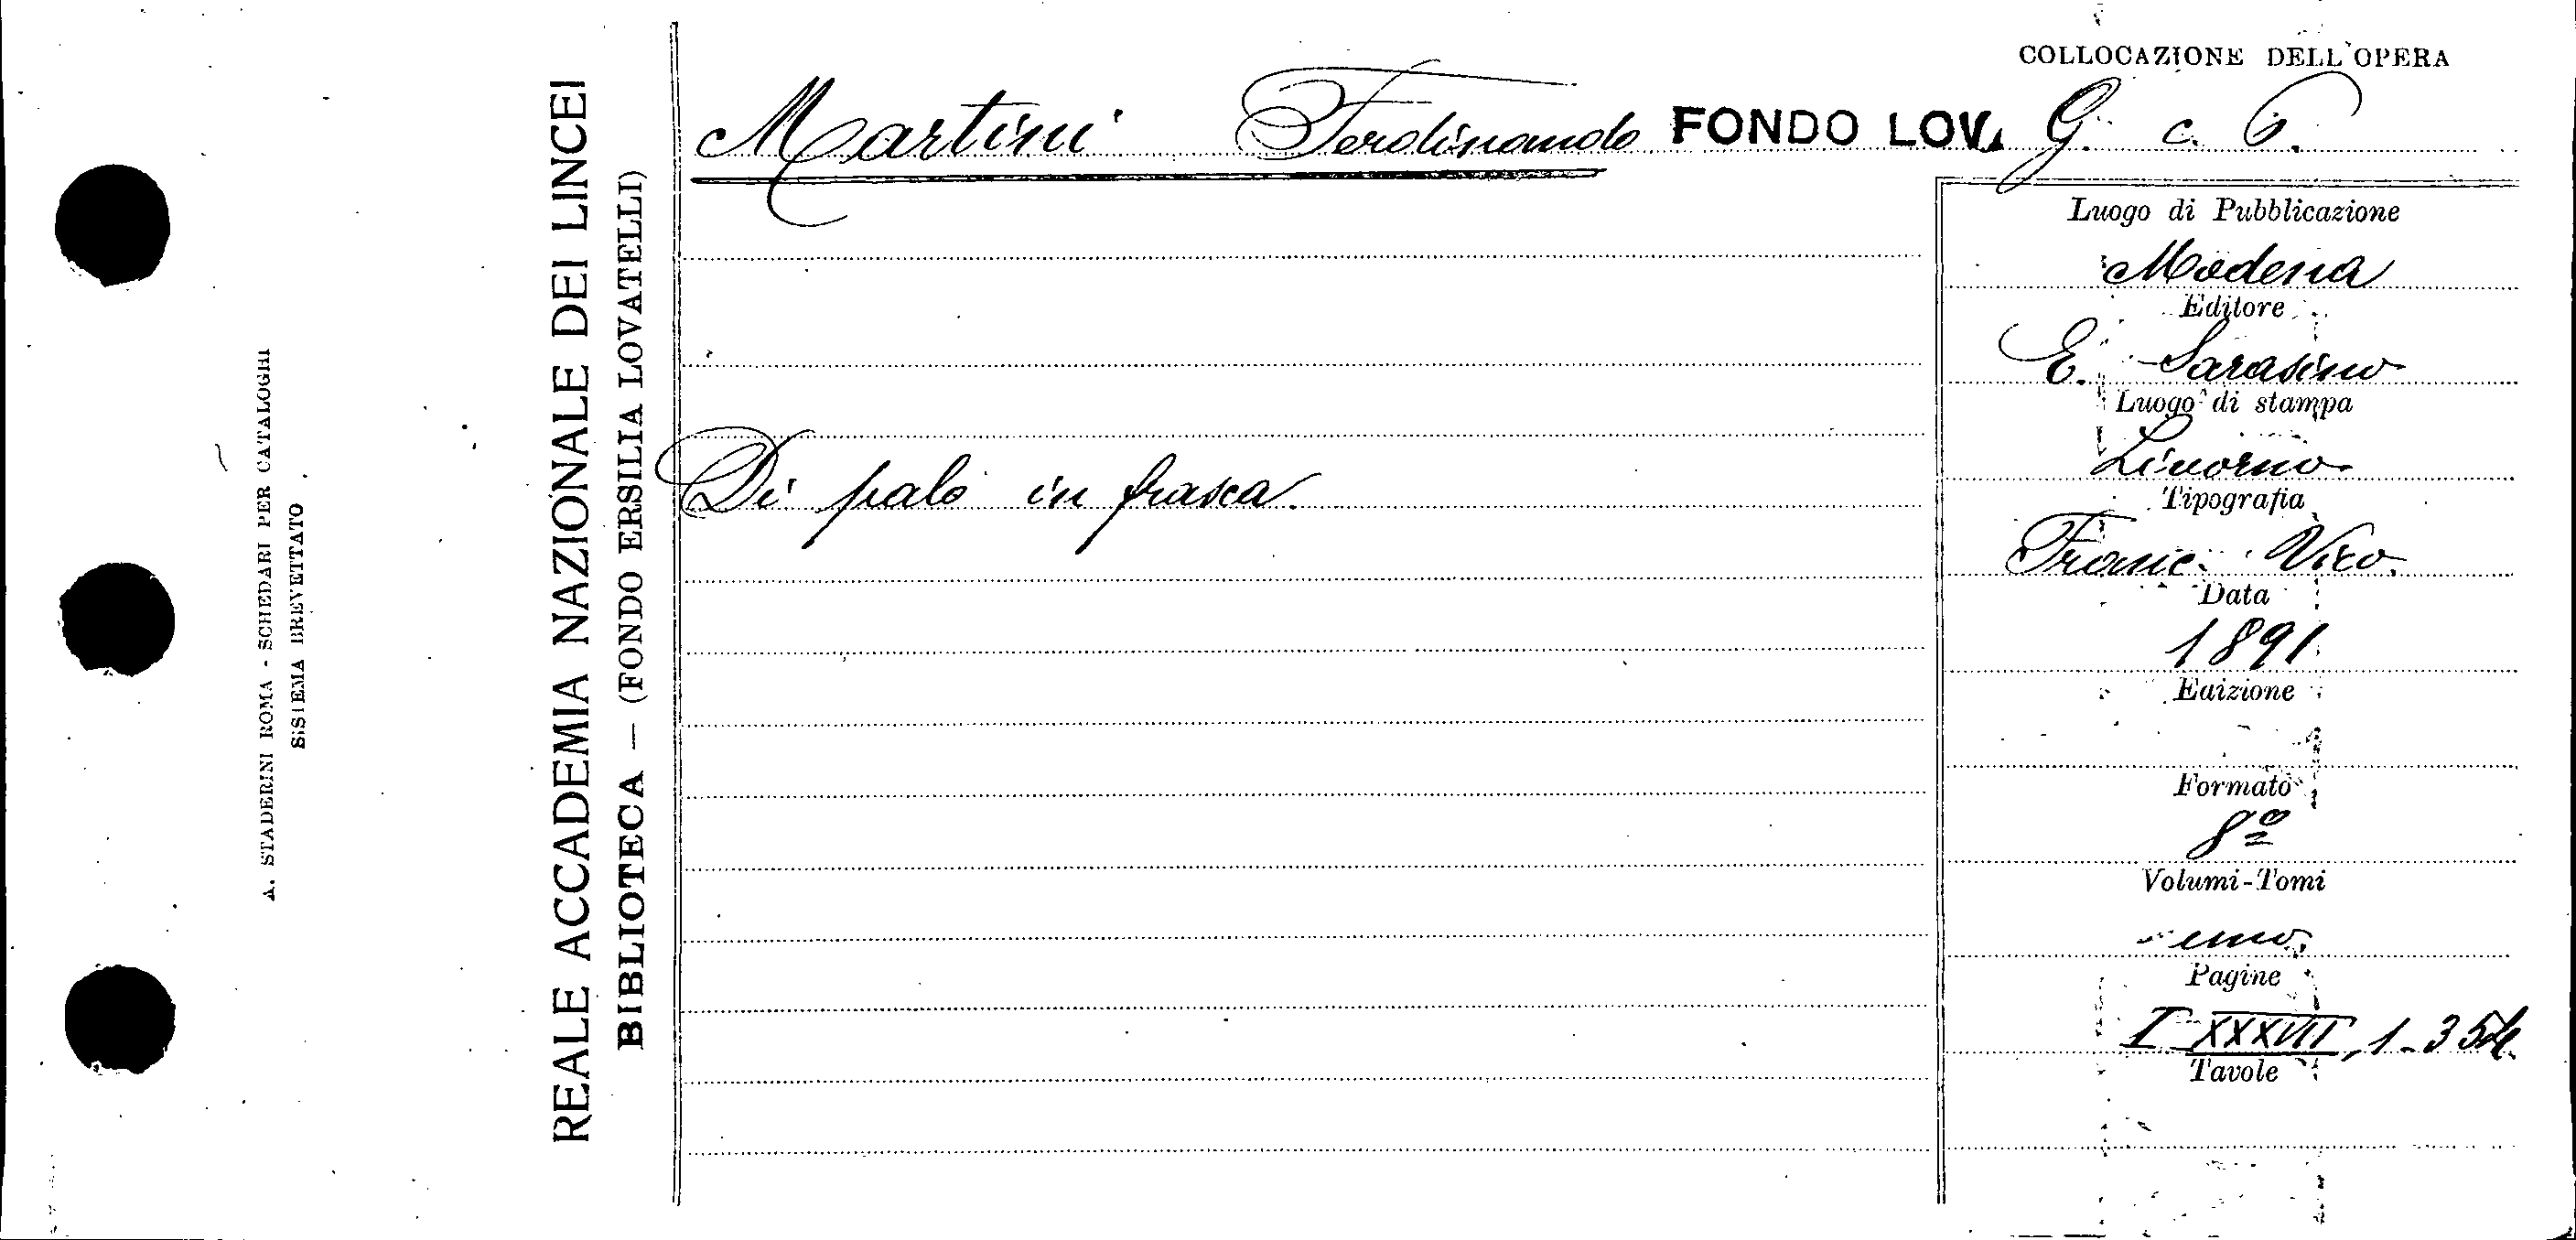 COLLOCAZIONE DELL'OPERA
Martini Ferdinando FONDO LOV. G. c. 6.
Di palo in frasca.
Luogo di Pubblicazione
Modena
Editore
E. Sarasino
Luogo di stampa
Livorno
Tipografia
Franc. Vico.
Data
1891
Edizione
Formato
8º
Volumi-Tomi
uno.
Pagine
I-XXXVII, 1-354.
Tavole
REALE ACCADEMIA NAZIONALE DEI LINCEI
BIBLIOTECA — (FONDO ERSILIA LOVATELLI)
A. STADERINI ROMA - SCHEDARI PER CATALOGHI
SISTEMA BREVETTATO